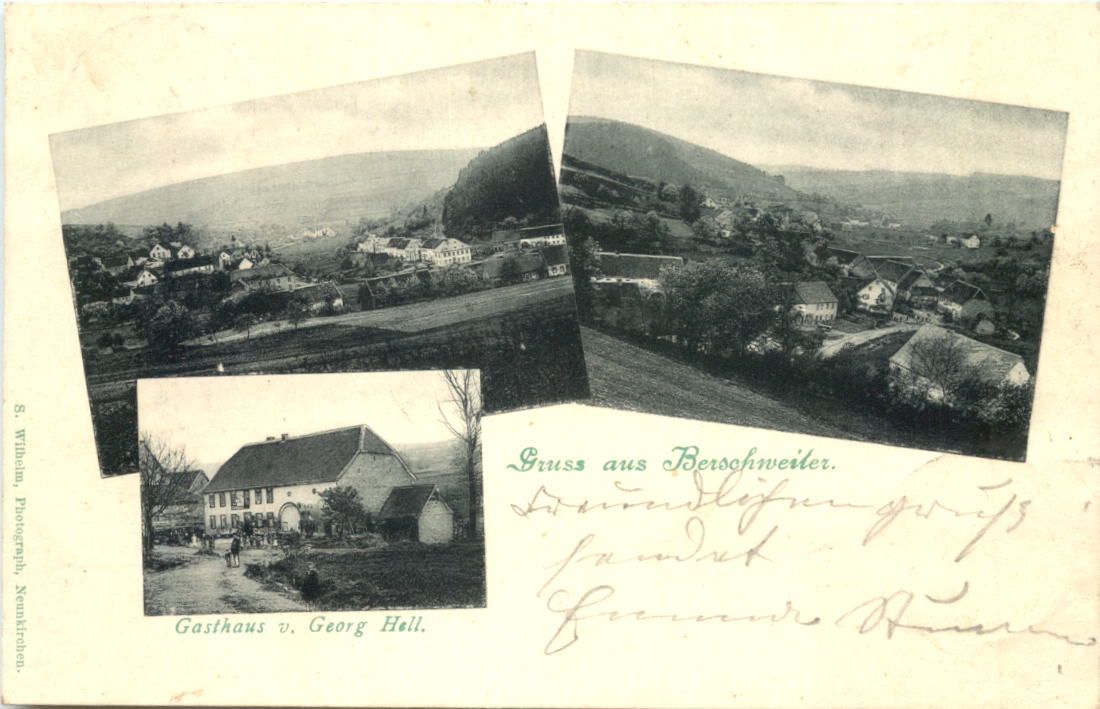 Gruss aus Berschweiler.
Freundlichen Gruß
sendet
Gasthaus v. Georg Hell.
S. Wilhelm, Photograph, Neunkirchen.